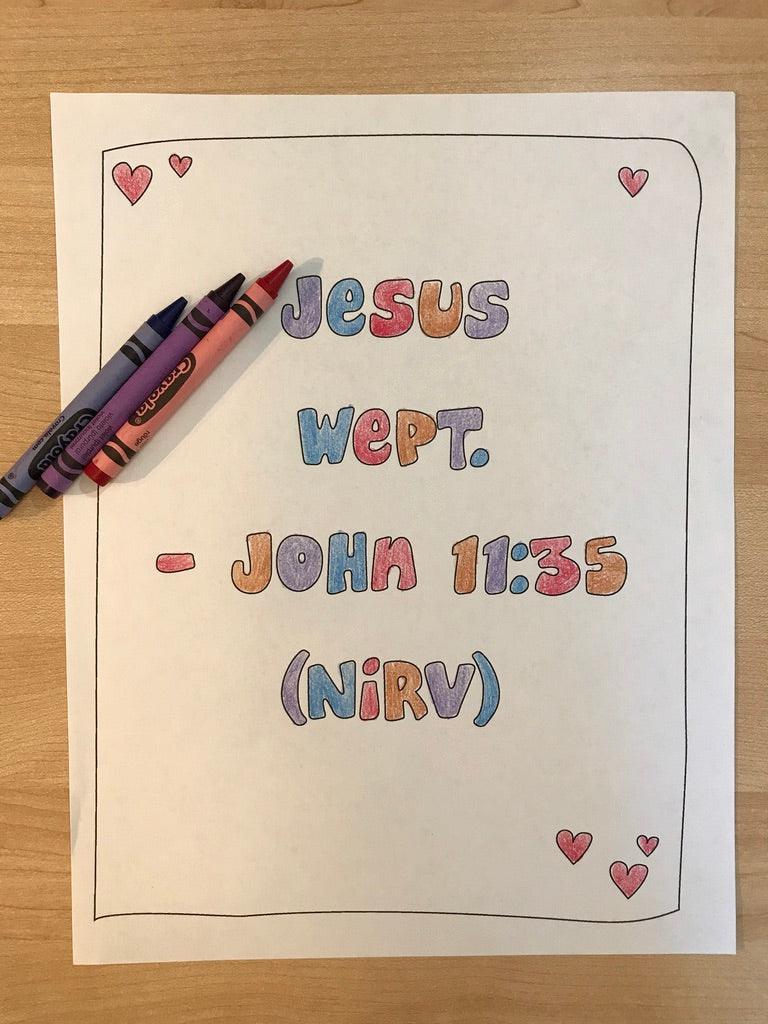 Jesus
wept.
- John 11:35
(NiRV)
Crayola
Crayola
Crayola.com